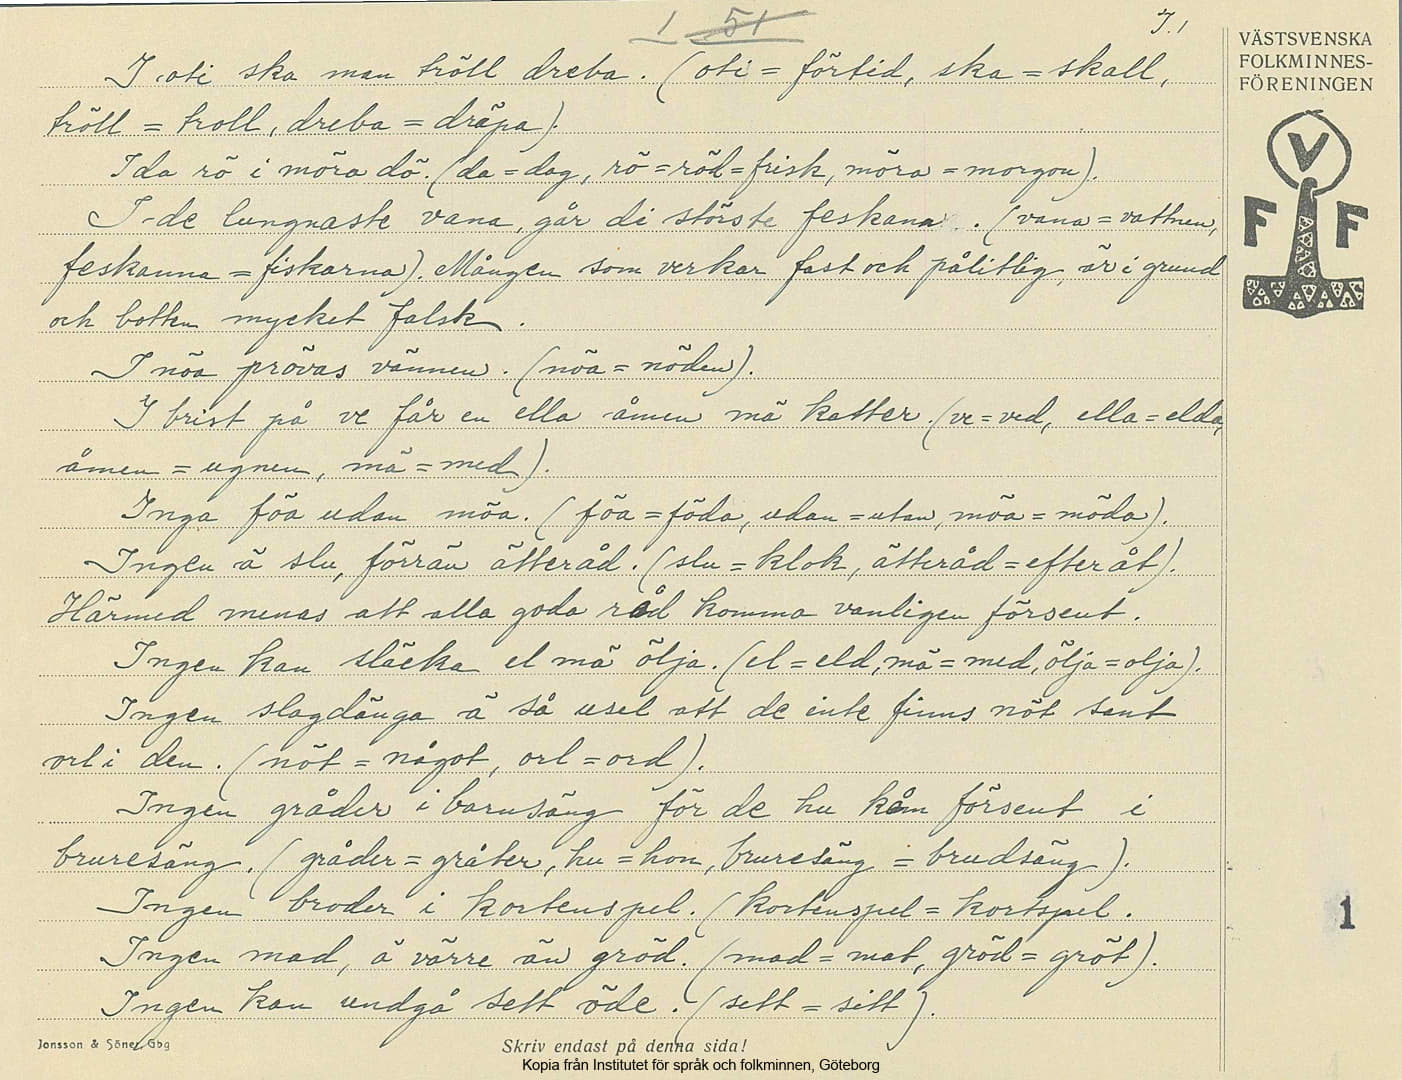 1 51
I.1
I oti ska man tröll dreba. (oti = förtid, ska = skall,
tröll = troll, dreba = dräpa).
I da rö i möra dö. (da = dag, rö = röd = frisk, möra = morgon).
I de lungnaste vana, går di störste feskana. (vana = vattnen,
feskanna = fiskarna). Mången som verkar fast och pålitlig, är i grund
och botten mycket falsk.
I nöa prövas vännen. (nöa = nöden).
I brist på ve får en ella åmen mä katter. (ve = ved, ella = elda,
åmen = ugnen, mä = med).
Inga föa udan möa. (föa = föda, udan = utan, möa = möda).
Ingen ä slu, förrän ätteråd. (slu = klok, ätteråd = efteråt).
Härmed menas att alla goda råd komma vanligen försent.
Ingen kan släcka el mä ölja. (el = eld, mä = med, ölja = olja).
Ingen slagdänga ä så usel att de inte finns nöt sant
orl i den. (nöt = något, orl = ord).
Ingen gråder i barnsäng för de hu kåm försent i
bruresäng. (gråder = gråter, hu = hon, bruresäng = brudsäng).
Ingen broder i kortenspel. (kortenspel = kortspel.
Ingen mad, ä värre än gröd. (mad = mat, gröd = gröt).
Ingen kan undgå sett öde. (sett = sitt).
VÄSTSVENSKA
FOLKMINNES-
FÖRENINGEN
V
F F
1
Jonsson & Söner, Gbg
Skriv endast på denna sida!
Kopia från Institutet för språk och folkminnen, Göteborg